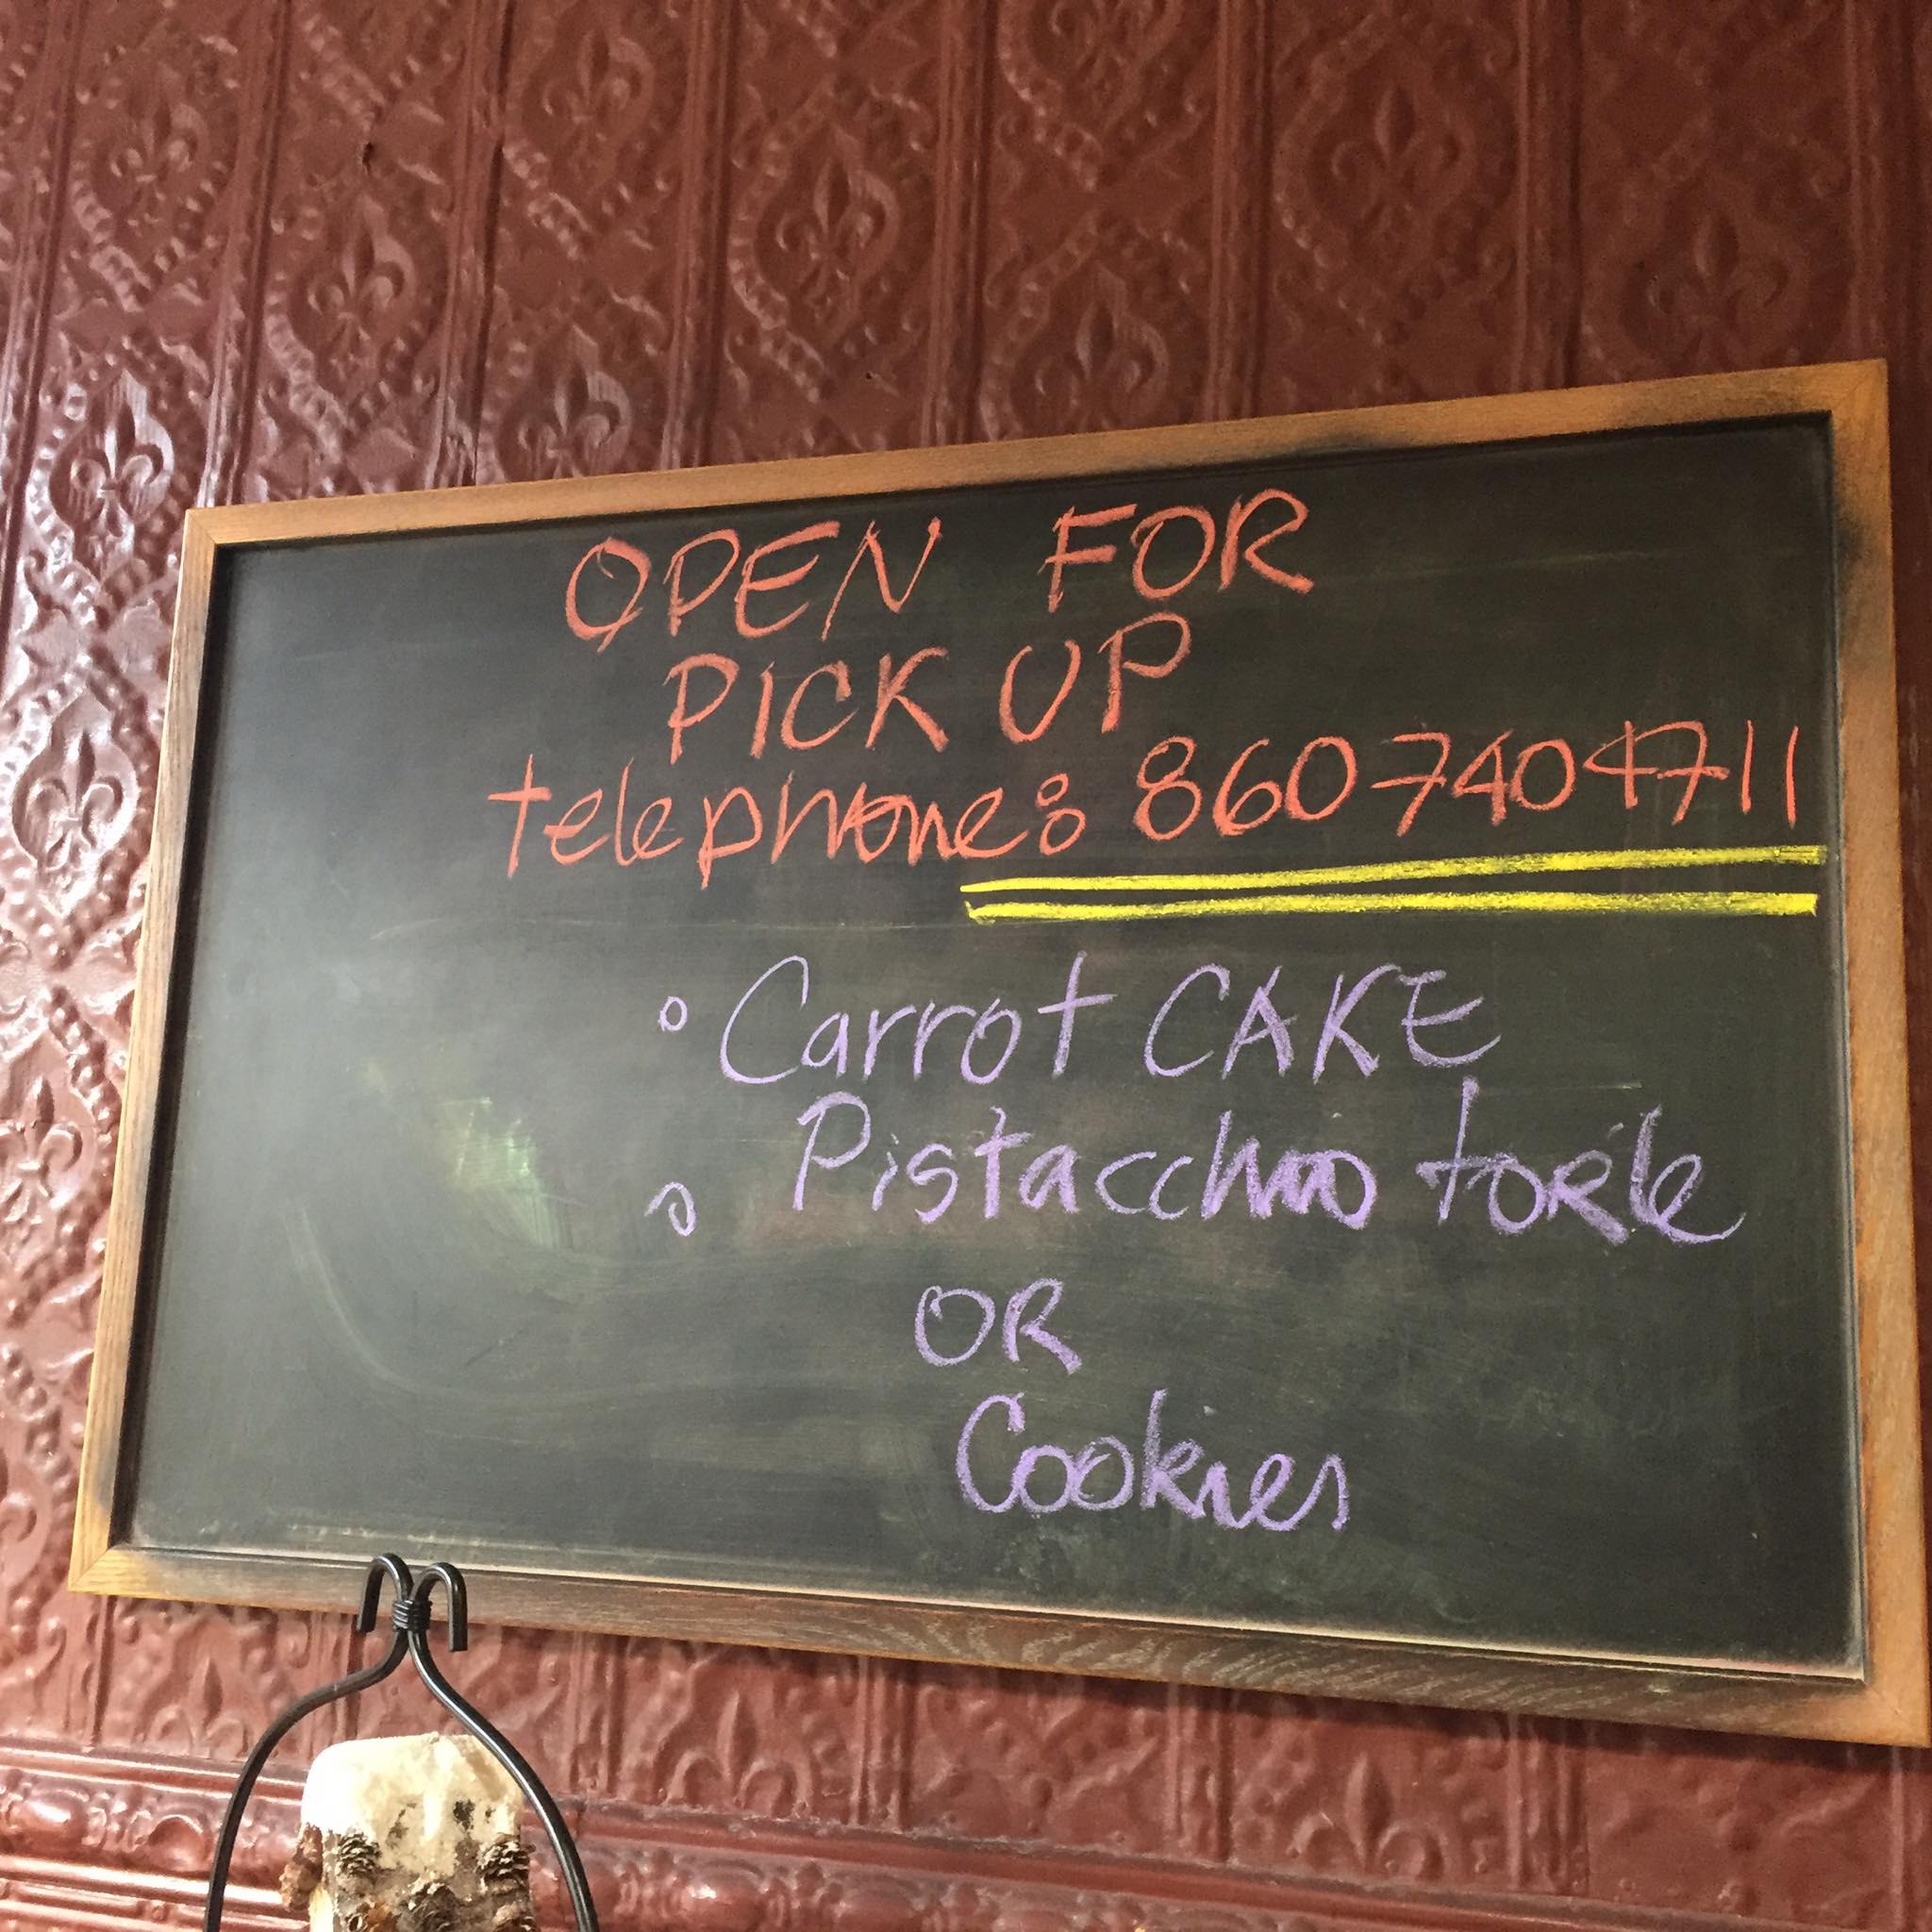 OPEN FOR
PICK UP
telephone: 860 740 4711
◦ Carrot CAKE
◦ Pistacchio torte
OR
Cookies